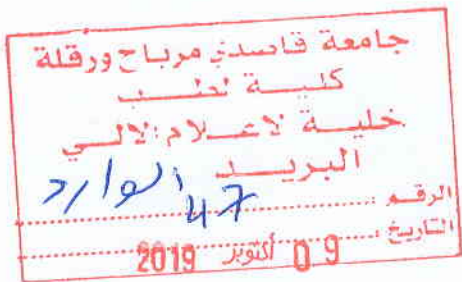 جامعة قاصدي مرباح ورقلة
كلية لطب
خلية لاعلام الالي
البريد الوارد
الرقم : 47
التاريخ : 09 أكتوبر 2019